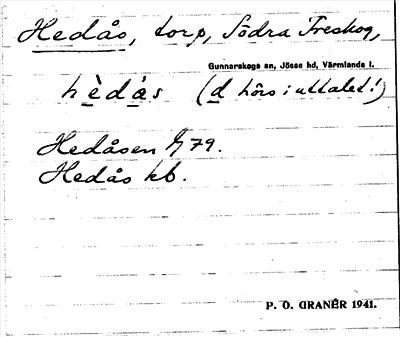 Hedås, torp, Södra Treskog,
Gunnarskogs sn, Jösse hd, Värmlands l.
hèdås (d hörs i uttalet!)
Hedåsen 79.
Hedås kb.
P. O. GRANÉR 1941.